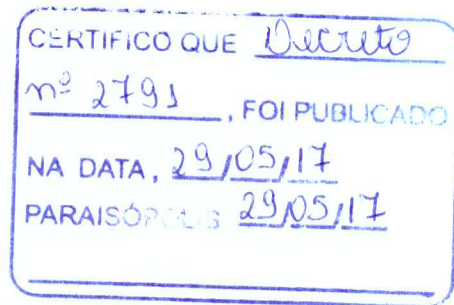 CERTIFICO QUE Decreto
nº 2791, FOI PUBLICADO
NA DATA, 29/05/17
PARAISÓPOLIS 29/05/17